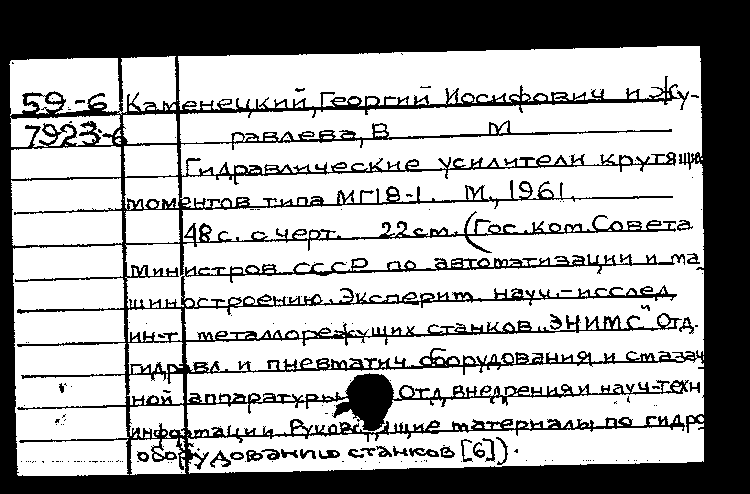 59-6 Каменецкий, Георгий Иосифович и Жу-
7923-6 равлева, В М
Гидравлические усилители крутящих
моментов типа МГ18-1. М., 1961.
48 с. с черт. 22 см. (Гос. ком. Совета
Министров СССР по автоматизации и ма
шиностроению. Эксперим. науч.-исслед.
ин-т металлорежущих станков „ЭНИМС" Отд.
гидравл. и пневматич. оборудования и смазоч
ной аппаратуры Отд. внедрения и науч-техн
информации. Руководящие материалы по гидро
оборудованию станков [6]).